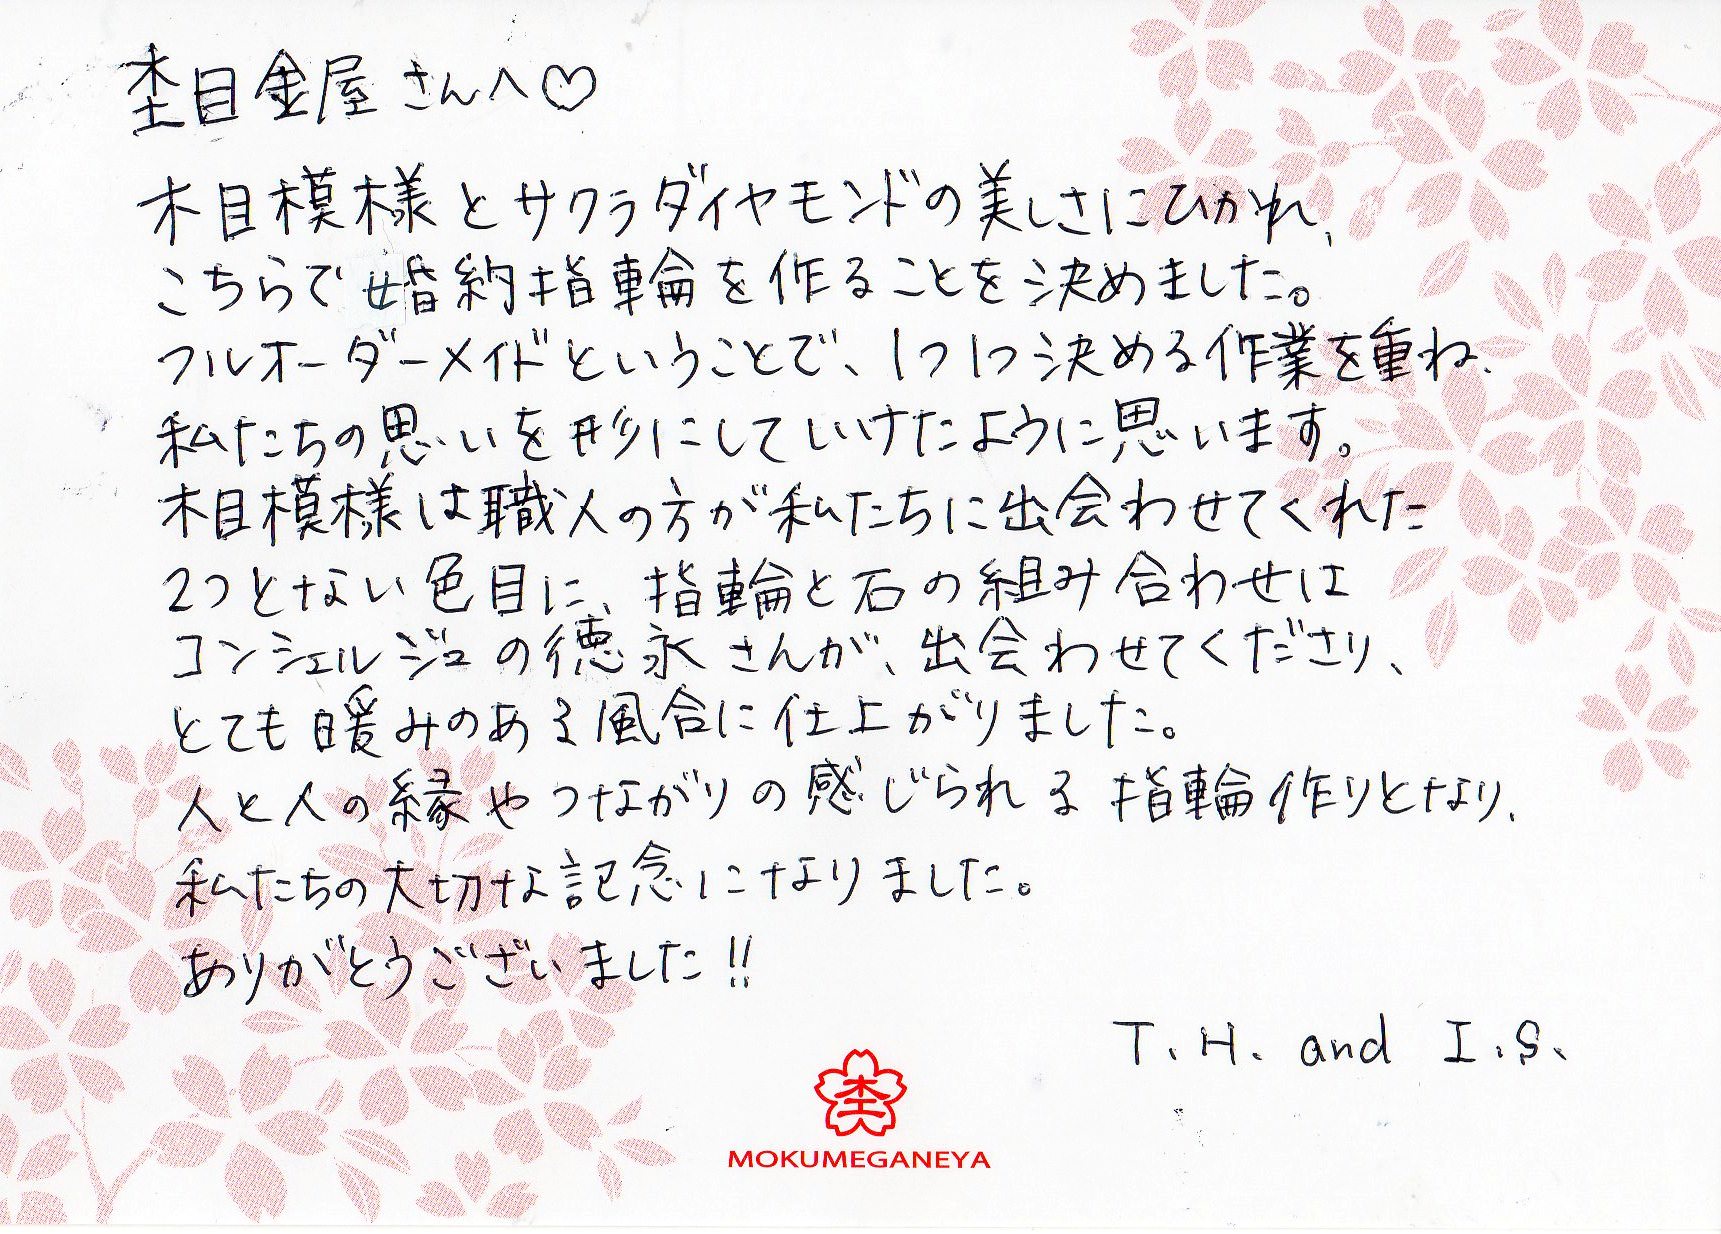 杢目金屋さんへ♡
木目模様とサクラダイヤモンドの美しさにひかれ、
こちらで婚約指輪を作ることを決めました。
フルオーダーメイドということで、1つ1つ決める作業を重ね、
私たちの思いを形にしていけたように思います。
木目模様は職人の方が私たちに出会わせてくれた
2つとない色目に、指輪と石の組み合わせは
コンシェルジュの徳永さんが、出会わせてくださり、
とても暖みのある風合に仕上がりました。
人と人の縁やつながりの感じられる指輪作りとなり、
私たちの大切な記念になりました。
ありがとうございました!!
T.H. and I.S.
杢
MOKUMEGANEYA